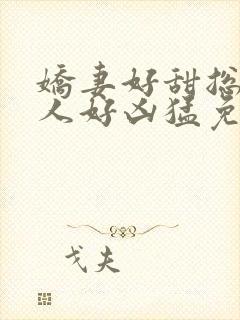 嬌妻好甜總
人好凶猛免
戈夫